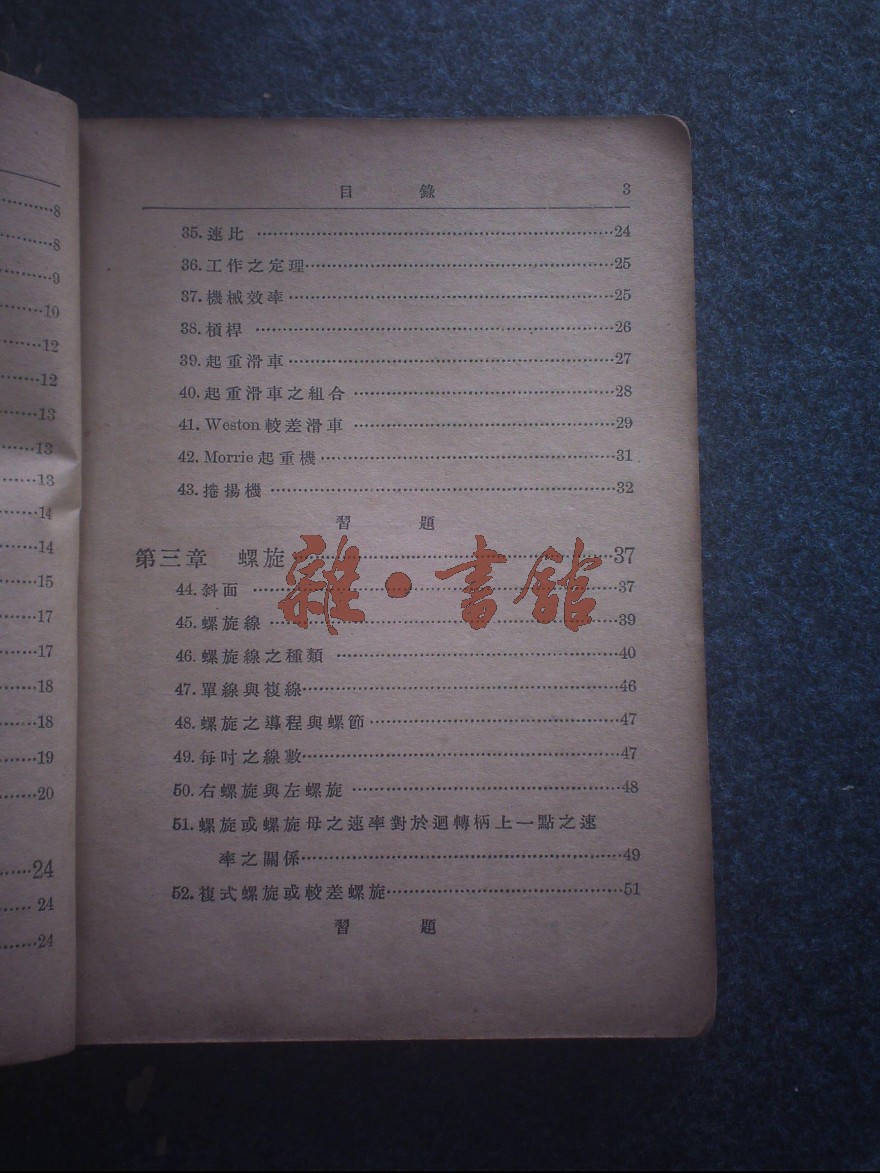 8
8
9
10
12
12
13
13
13
14
14
15
17
17
18
18
19
20
24
24
24
目 錄 3
35. 速比 24
36. 工作之定理 25
37. 機械效率 25
38. 槓桿 26
39. 起重滑車 27
40. 起重滑車之組合 28
41. Weston 較差滑車 29
42. Morrie 起重機 31
43. 捲揚機 32
習 題
第三章 螺旋 37
44. 斜面 37
45. 螺旋線 39
46. 螺旋線之種類 40
47. 單線與複線 46
48. 螺旋之導程與螺節 47
49. 每吋之線數 47
50. 右螺旋與左螺旋 48
51. 螺旋或螺旋母之速率對於迴轉柄上一點之速
率之關係 49
52. 複式螺旋或較差螺旋 51
習 題
雜·書館